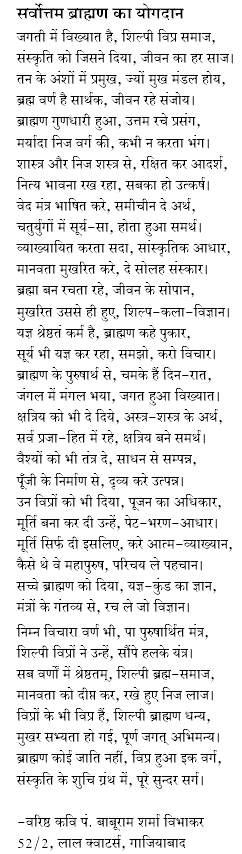 सर्वोत्तम ब्राह्मण का योगदान
जगती में विख्यात है, शिल्पी विप्र समाज,
संस्कृति को जिसने दिया, जीवन का हर साज।
तन के अंशों में प्रमुख, ज्यों मुख मंडल होय,
ब्रह्म वर्ण है सार्थक, जीवन रहे संजोय।
ब्राह्मण गुणधारी हुआ, उत्तम रचे प्रसंग,
मर्यादा निज वर्ग की, कभी न करता भंग।
शास्त्र और निज शस्त्र से, रक्षित कर आदर्श,
नित्य भावना रख रहा, सबका हो उत्कर्ष।
वेद मंत्र भाषित करे, समीचीन दे अर्थ,
चतुर्युगों में सूर्य-सा, होता हुआ समर्थ।
व्याख्यायित करता सदा, सांस्कृतिक आधार,
मानवता मुखरित करे, दे सोलह संस्कार।
ब्रह्मा बन रचता रहे, जीवन के सोपान,
मुखरित उससे ही हुए, शिल्प-कला-विज्ञान।
यज्ञ श्रेष्ठतं कर्म है, ब्राह्मण कहे पुकार,
सूर्य भी यज्ञ कर रहा, समझो, करो विचार।
ब्राह्मण के पुरुषार्थ से, चमके हैं दिन-रात,
जंगल में मंगल भया, जगत हुआ विख्यात।
क्षत्रिय को भी दे दिये, अस्त्र-शस्त्र के अर्थ,
सर्व प्रजा-हित में रहे, क्षत्रिय बने समर्थ।
वैश्यों को भी तंत्र दे, साधन से सम्पन्न,
पूँजी के निर्माण से, द्रव्य करे उत्पन्न।
उन विप्रों को भी दिया, पूजन का अधिकार,
मूर्ति बना कर दी उन्हें, पेट-भरण-आधार।
मूर्ति सिर्फ दी इसलिए, करे आत्म-व्याख्यान,
कैसे थे वे महापुरुष, परिचय ले पहचान।
सच्चे ब्राह्मण को दिया, यज्ञ-कुंड का ज्ञान,
मंत्रों के गंतव्य से, रच ले जो विज्ञान।
निम्न विचारा वर्ण भी, पा पुरुषार्थित मंत्र,
शिल्पी विप्रों ने उन्हें, सौंपे हलके यंत्र।
सब वर्णों में श्रेष्ठतम्, शिल्पी ब्रह्म-समाज,
मानवता को दीप्त कर, रखे हुए निज लाज।
विप्रों के भी विप्र हैं, शिल्पी ब्राह्मण धन्य,
मुखर सभ्यता हो गई, पूर्ण जगत् अभिमन्य।
ब्राह्मण कोई जाति नहीं, विप्र हुआ इक वर्ग,
संस्कृति के शुचि ग्रंथ में, पूरे सुन्दर सर्ग।
-वरिष्ठ कवि पं. बाबूराम शर्मा विभाकर
52/2, लाल क्वाटर्स, गाजियाबाद